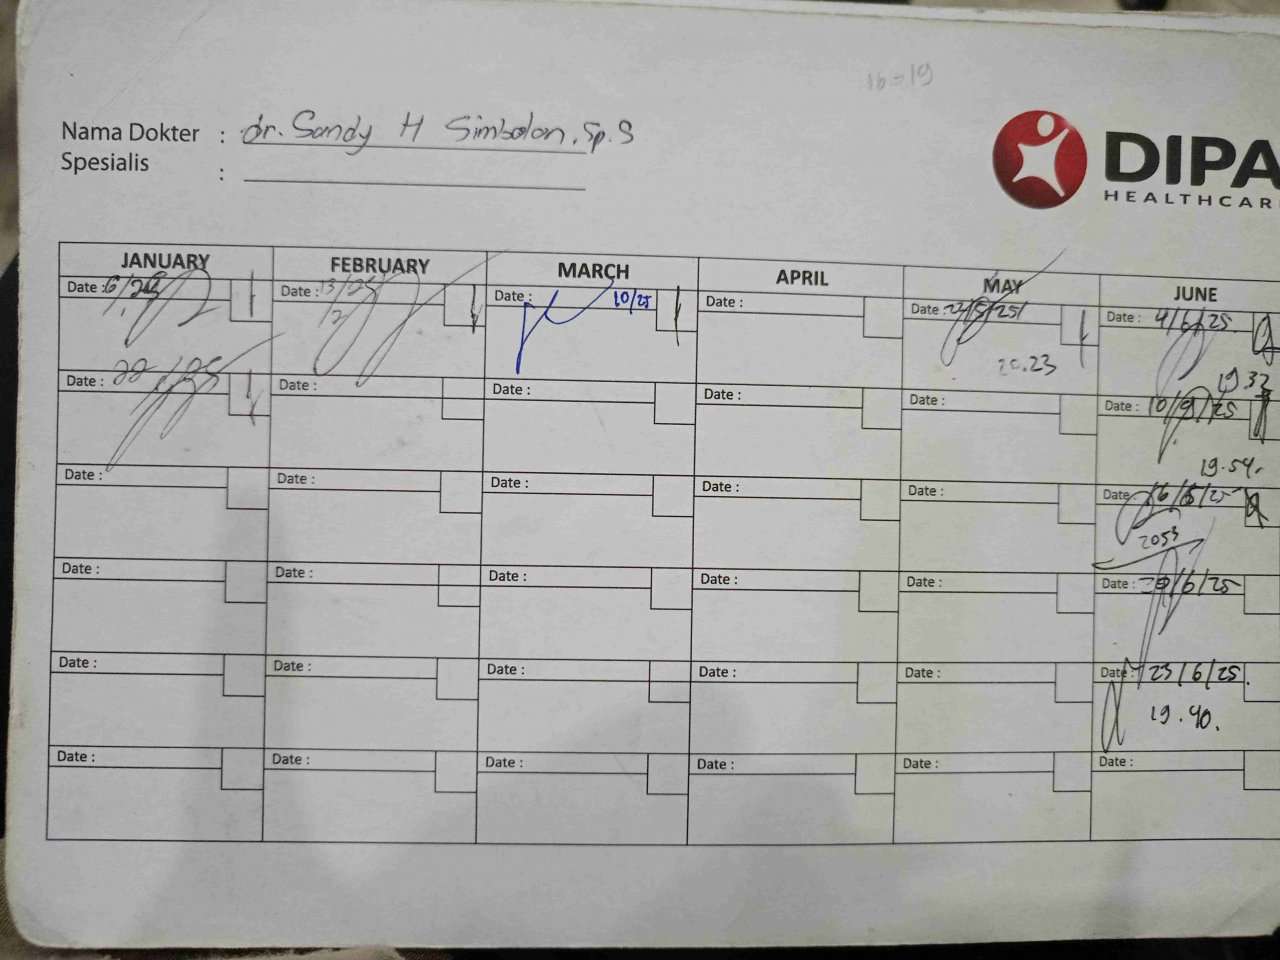 16-19
Nama Dokter : dr. Sandy H Simbolon, Sp.S
Spesialis :
DIPA
HEALTHCAR
JANUARY FEBRUARY MARCH APRIL MAY JUNE
Date : 6/ Date : 13/25 Date : 10/25 Date : Date : 22/5/25 Date : 4/6/25.
1/2
20.23 19.32
Date : 22 /25 Date : Date : Date : Date : Date : 10/ /25
19.54.
Date : Date : Date : Date : Date : Date : 16/6/25
2053
Date : Date : Date : Date : Date : Date : /6/25
Date : Date : Date : Date : Date : Date : 23/6/25.
19.40.
Date : Date : Date : Date : Date : Date :